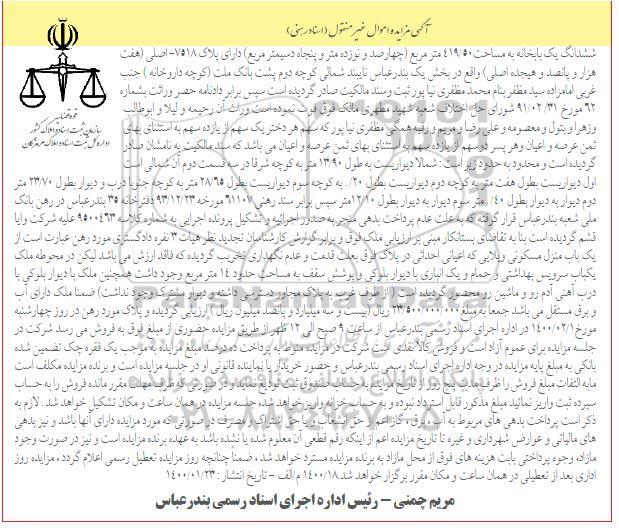 آگهی مزایده اموال غیر منقول (اسناد رهنی)
ششدانگ یک بابخانه به مساحت ۴۱۹/۵۰ متر مربع (چهارصد و نوزده متر و پنجاه دسیمتر مربع) دارای پلاک ۷۵۱۸- اصلی (هفت
هزار و پانصد و هیجده اصلی) واقع در بخش یک بندرعباس تایبند شمالی کوچه دوم پشت بانک ملت (کوچه داروخانه) جنب
غربی امامزاده سید مظفر بنام محمد مظفری نیا پور ثبت وسند مالکیت صادر گردیده است سپس برابر دادنامه حصر وراثت بشماره
۶۲ مورخ ۹۱/۰۲/۳۱ شورای حل اختلاف شعبه شهید مطهری مالک فوق فوت نموده است وراث آن رحیمه و لیلا و ابوطالب
وزهرا و بتول و معصومه و علی رضا و مریم و رقیه همگی مظفری نیا پور که سهم هر دختر یک سهم از یازده سهم به استثنای بهای
ثمن عرصه و اعیان وهر پسر دوسهم از یازده سهم به استثنای بهای ثمن عرصه و اعیان می باشد که سند مالکیت به نامشان صادر
گردیده است و محدود به حدود زیر است : شمالا دیواریست به طول ۱۳/۹۰ متر به کوچه شرقا در سه قسمت دوم آن شمالی است
اول دیواریست بطول هفت متر به کوچه دوم دیواریست بطول ۰/۲۰ به کوچه سوم دیواریست بطول ۲۸/۶۵ متر به کوچه جنوبا درب و دیوار بطول ۲۳/۷۰ متر
دوم دیوار به دیوار بطول ۰/۴۰ متر سوم دیوار به دیوار بطول ۱۲/۱۰ متر سپس برابر سند رهنی ۶۱۱۰۷ مورخه ۹۳/۱۲/۲۳ دفترخانه ۳۵ بندرعباس در رهن بانک
ملی شعبه بندرعباس قرار گرفته که به علت عدم پرداخت بدهی منجر به صدور اجرائیه و تشکیل پرونده اجرایی به شماره کلاسه ۹۵۰۰۴۶۳ علیه شرکت وایا
قشم گردیده است بنا به تقاضای بستانکار مبنی بر ارزیابی ملک فوق و برابر گزارش کارشناسان تجدید نظر هیات ۳ نفره دادگستری مورد رهن عبارت است از
یک باب منزل مسکونی ویلایی که اعیانی احداثی در پلاک فوق بعلت قدمت و عدم نگهداری تخریب گردیده که فاقد ارزش می باشد لیکن در محوطه ملک
یکباب سرویس بهداشتی و حمام و یک انباری با دیوار بلوکی و پوشش سقف به مساحت حدود ۱۴ متر مربع وجود داشت همچنین ملک با دیوار بلوکی با
درب آهنی آدم رو و ماشین رو محصور گردیده است ( از طرف غرب به پلاک مجاور دسترسی داشته و دیوار مشترک وجود نداشت) ضمنا ملک دارای آب
و برق مستقل می باشد جمعا به مبلغ ۲۳/۵۰۰/۰۰۰/۰۰۰ ریال (بیست و سه میلیارد و پانصد میلیون ریال ) ارزیابی گردیده و پلاک مورد رهن در روز چهارشنبه
مورخ ۱۴۰۰/۰۲/۱ در اداره اجرای اسناد رسمی بندرعباس از ساعت ۹ صبح الی ۱۲ ظهر از طریق مزایده حضوری از مبلغ فوق به فروش می رسد شرکت در
جلسه مزایده برای عموم آزاد است و فروش کالا نقدی است شرکت در مزایده منوط به پرداخت ده درصد مبلغ مزایده به موجب یک فقره چک تضمین شده
بانکی به مبلغ پایه مزایده در وجه اداره اجرای اسناد رسمی بندرعباس و حضور خریدار یا نماینده قانونی او در جلسه مزایده است و برنده مزایده مکلف است
مابه التفات مبلغ فروش را ظرف مدت پنج روز از تاریخ مزایده به حساب صندوق ثبت تودیع نماید و در صورتی که ظرف مهلت مقرر مانده فروش را به حساب
سپرده ثبت واریز ننمائید مبلغ مذکور قابل استرداد نبوده و به حساب خزانه واریز خواهد شد، جلسه مزایده در همان ساعت و مکان تشکیل خواهد شد . لازم به
ذکر است پرداخت بدهی های مربوط به آب، برق، گاز اعم از حق انشعاب و یا حق اشتراک و مصرف در صورتی که مورد مزایده دارای آنها باشد و نیز بدهی
های مالیاتی و عوارض شهرداری و غیره تا تاریخ مزایده اعم از اینکه رقم قطعی آن معلوم شده یا نشده باشد به عهده برنده مزایده است و نیز در صورت وجود
مازاد، وجوه پرداختی بابت هزینه های فوق از محل مازاد به برنده مزایده مسترد خواهد شد، ضمناً چنانچه روز مزایده تعطیل رسمی اعلام گردد ، مزایده روز
اداری بعد از تعطیلی در همان ساعت و مکان مقرر برگزار خواهد شد. ۱۴۰۰/۱۸ م/الف - تاریخ انتشار : ۱۴۰۰/۰۱/۲۳
مریم چمنی - رئیس اداره اجرای اسناد رسمی بندرعباس
قوه قضائیه
سازمان ثبت اسناد و املاک کشور
اداره کل ثبت اسناد و املاک هرمزگان
۰۲۱-۸۸۳۴۹۶۷۰-۵